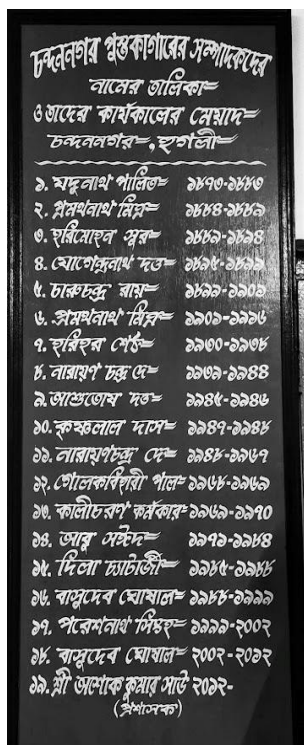 চন্দননগর পুস্তকাগারের সম্পাদকদের
নামের তালিকা=
ও তাদের কার্যকালের মেয়াদ=
চন্দননগর=, হুগলী=
১. যদুনাথ পালিত= ১৮৭৩-১৮৮৩
২. প্রমথনাথ মিত্র= ১৮৮৪-১৮৮৯
৩. হরিমোহন সুর= ১৮৮৯-১৮৯৪
৪. যোগেন্দ্রনাথ দত্ত= ১৮৯৫-১৮৯৯
৫. চারুচন্দ্র রায়= ১৮৯৯-১৯০১
৬. প্রমথনাথ মিত্র= ১৯০১-১৯১৬
৭. হরিহর শেঠ= ১৯৩০-১৯৩৮
৮. নারায়ণ চন্দ্র দে= ১৯৩৯-১৯৪৪
৯. আশুতোষ দত্ত= ১৯৪৫-১৯৪৬
১০. কৃষ্ণলাল দাস= ১৯৪৭-১৯৪৮
১১. নারায়ণচন্দ্র দে= ১৯৪৮-১৯৬৭
১২. গোলকবিহারী পাল= ১৯৬৮-১৯৬৯
১৩. কালীচরণ কর্মকার= ১৯৬৯-১৯৭০
১৪. আবু সঈদ= ১৯৭১-১৯৮৪
১৫. দিলা চ্যাটার্জী= ১৯৮৫-১৯৮৮
১৬. বাসুদেব ঘোষাল= ১৯৮৮-১৯৯৯
১৭. পরেশনাথ সিংহ= ১৯৯৯-২০০২
১৮. বাসুদেব ঘোষাল= ২০০২-২০১২
১৯. শ্রী অশোক কুমার সাউ ২০১২-
(প্রশাসক)